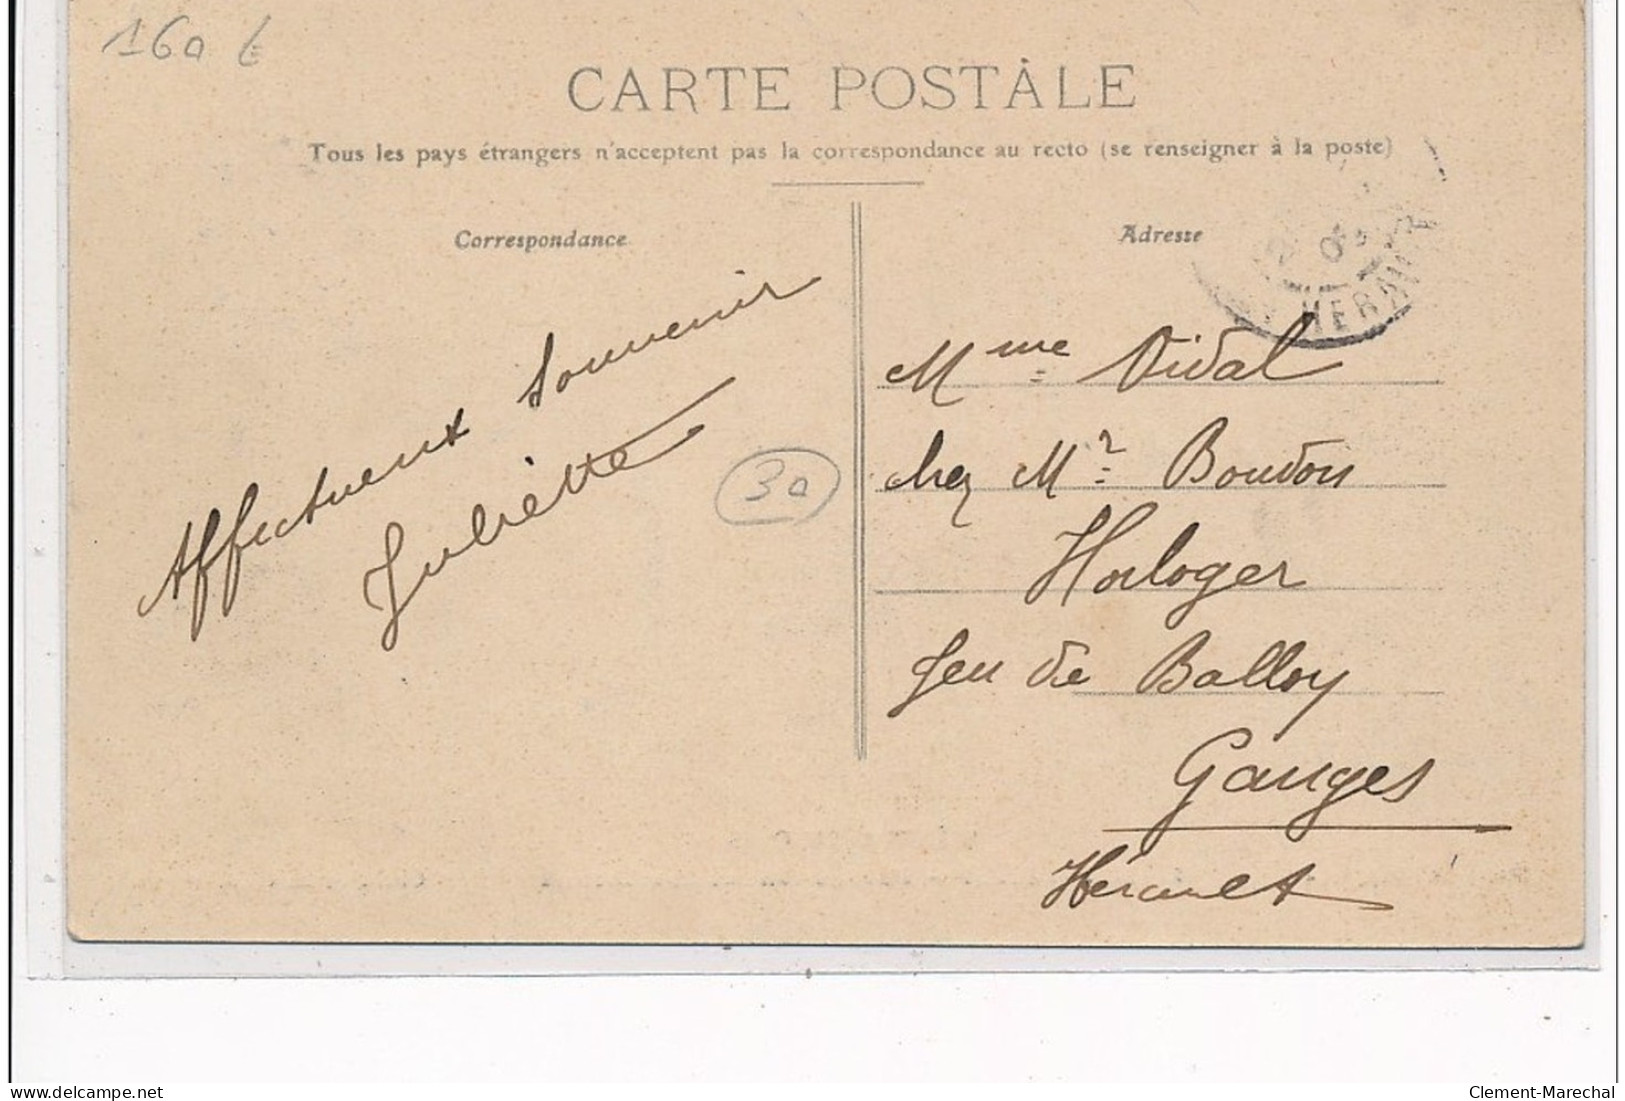 160 €
CARTE POSTALE
Tous les pays étrangers n'acceptent pas la correspondance au recto (se renseigner à la poste)
Correspondance
Adresse
HERAULT
Affectueux Souvenir
Juliette
30
Mme Vidal
chez Mr Boudon
Horloger
Jeu de Ballon
Ganges
Hérault
www.delcampe.net
Clement-Marechal